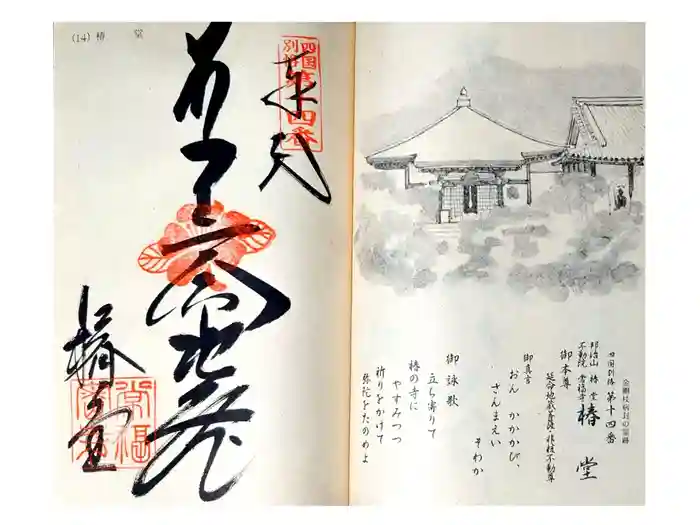 金剛杖病封の霊跡
四国別格 第十四番
邦治山 椿堂
不動院 常福寺
椿堂
御本尊
延命地蔵菩薩・非核不動尊
御真言
おん かかかび、
さんまえい
そわか
御詠歌
立ち寄りて
椿の寺に
やすみつつ
祈りをかけて
弥陀をたのめよ
(14) 椿堂
四国
別格
第十四番
奉
椿堂
常福